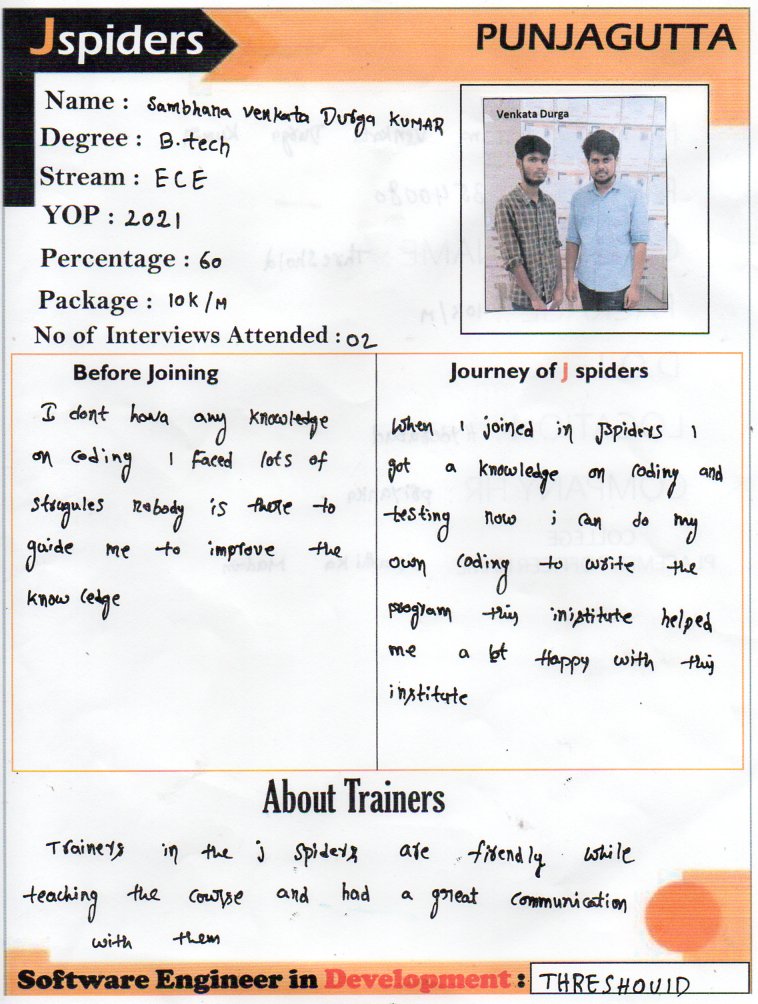 Jspiders
PUNJAGUTTA
Name : Sambhana Venkata Durga KUMAR
Degree : B.tech
Stream : ECE
YOP : 2021
Percentage : 60
Package : 10K/M
No of Interviews Attended : 02
Venkata Durga
Before Joining
I dont hava any knowledge
on coding I Faced lots of
stragules nobody is there to
guide me to improve the
know ledge
Journey of J spiders
When I joined in Jspiders I
got a knowledge on coding and
testing now i can do my
own coding to write the
program this inistitute helped
me a lot Happy with this
institute
About Trainers
Trainers in the j spiders are firendly while
teaching the course and had a great communication
with them
Software Engineer in Development : THRESHOUID